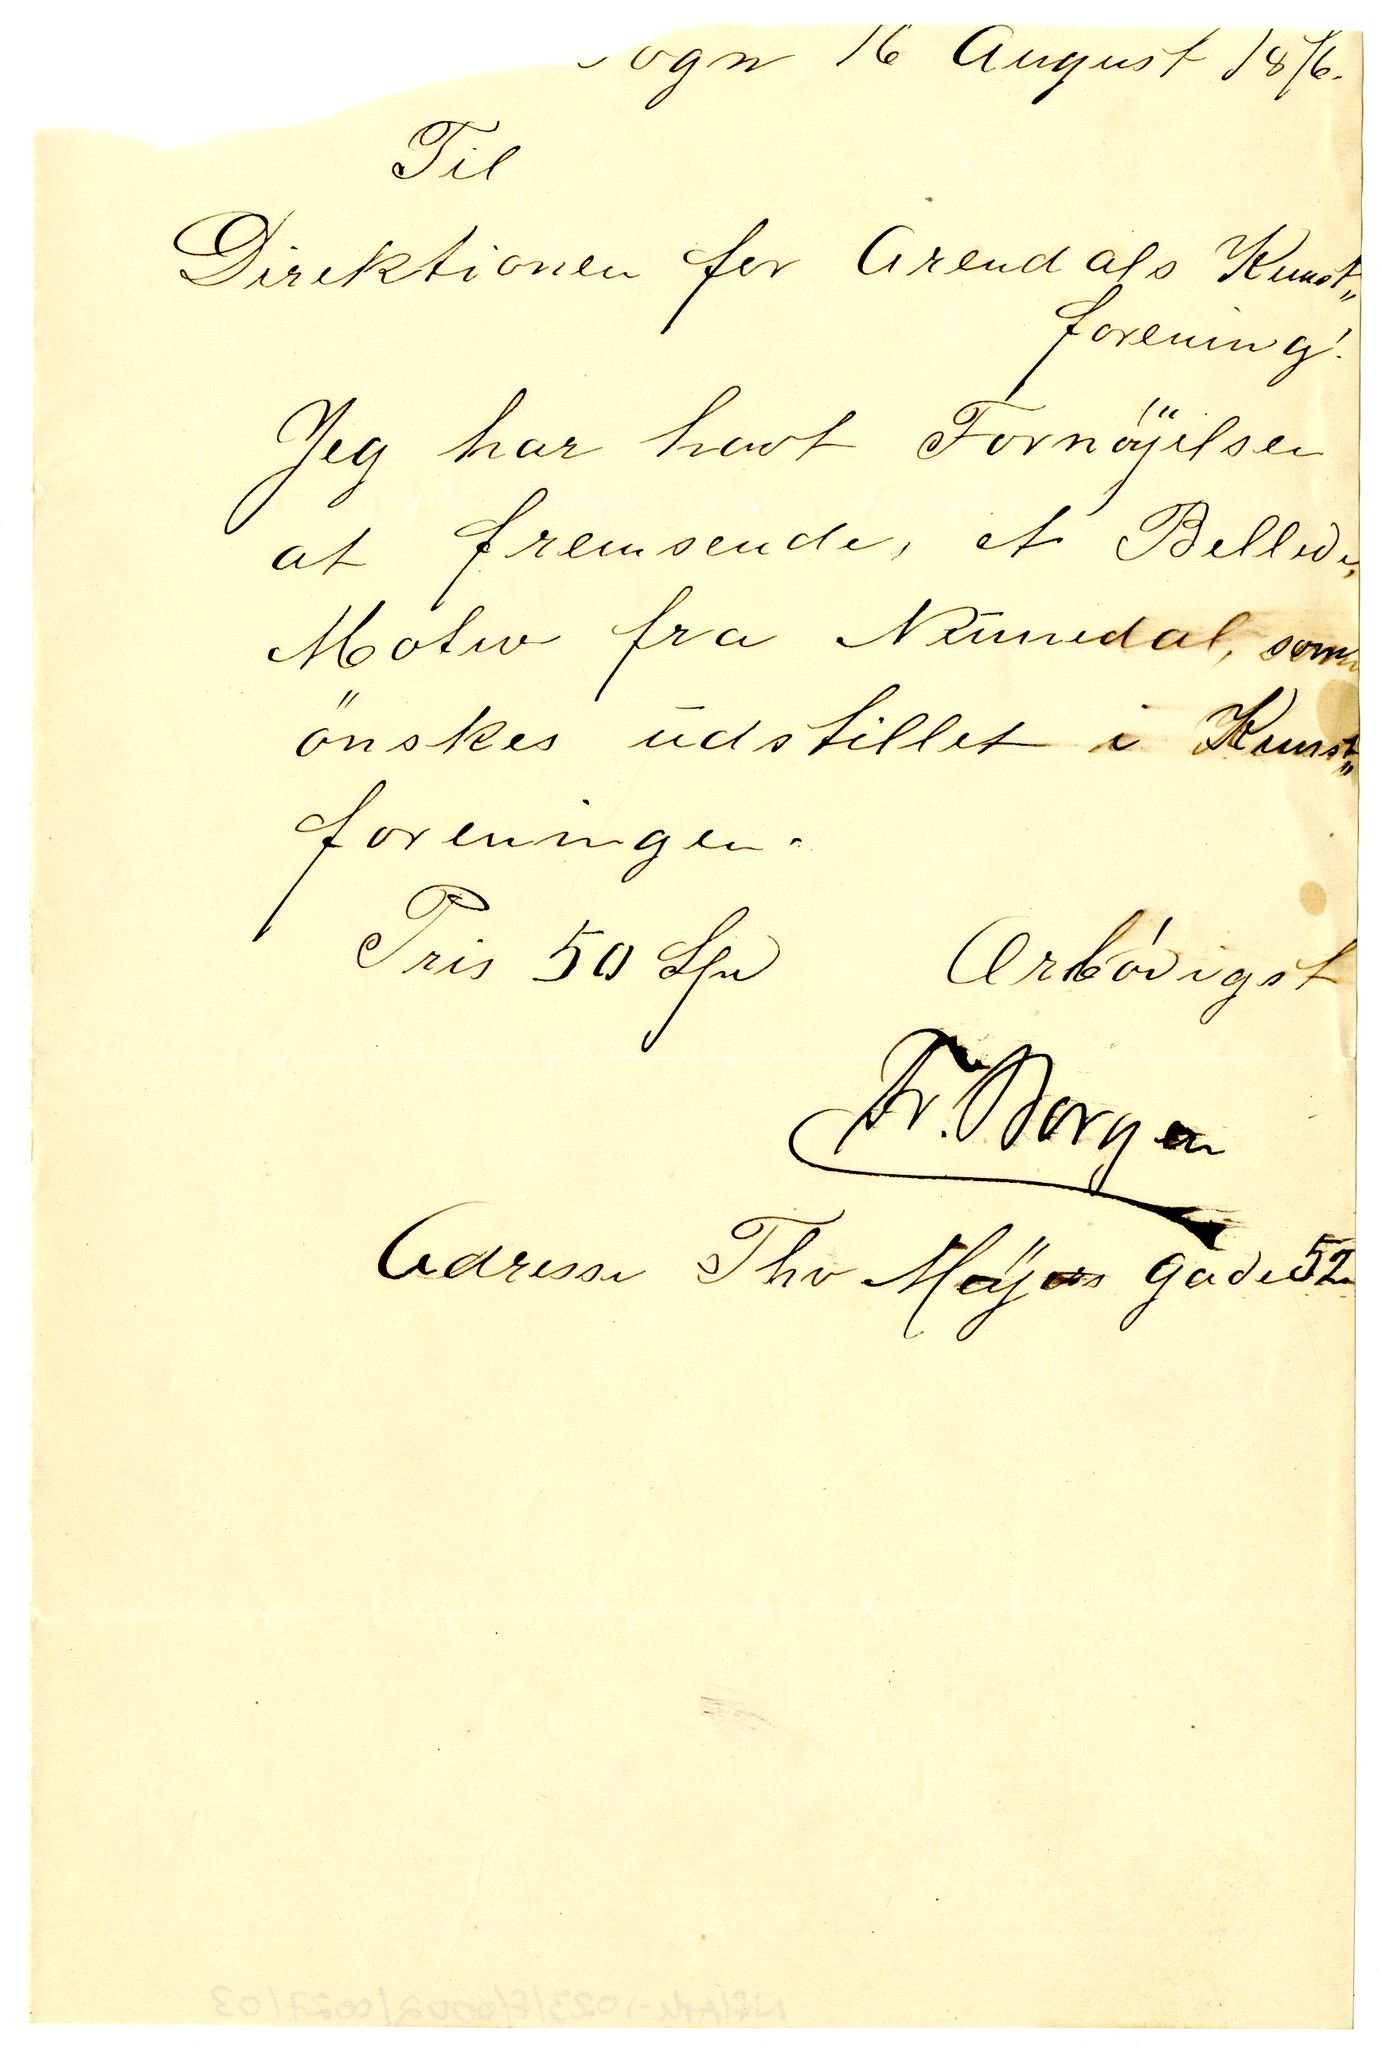 ogn 16 August 1876.
Til
Direktionen for Arendals Kunst„
forening!
Jeg har havt Fornöÿelsen
at fremsende, et Bellede,
Motiv fra Numedal, som
önskes udstillet i Kunst„
foreningen.
Pris 50 Spd Ærbödigst
Fr. Borgen
Adresse Thv Møÿers gade 52